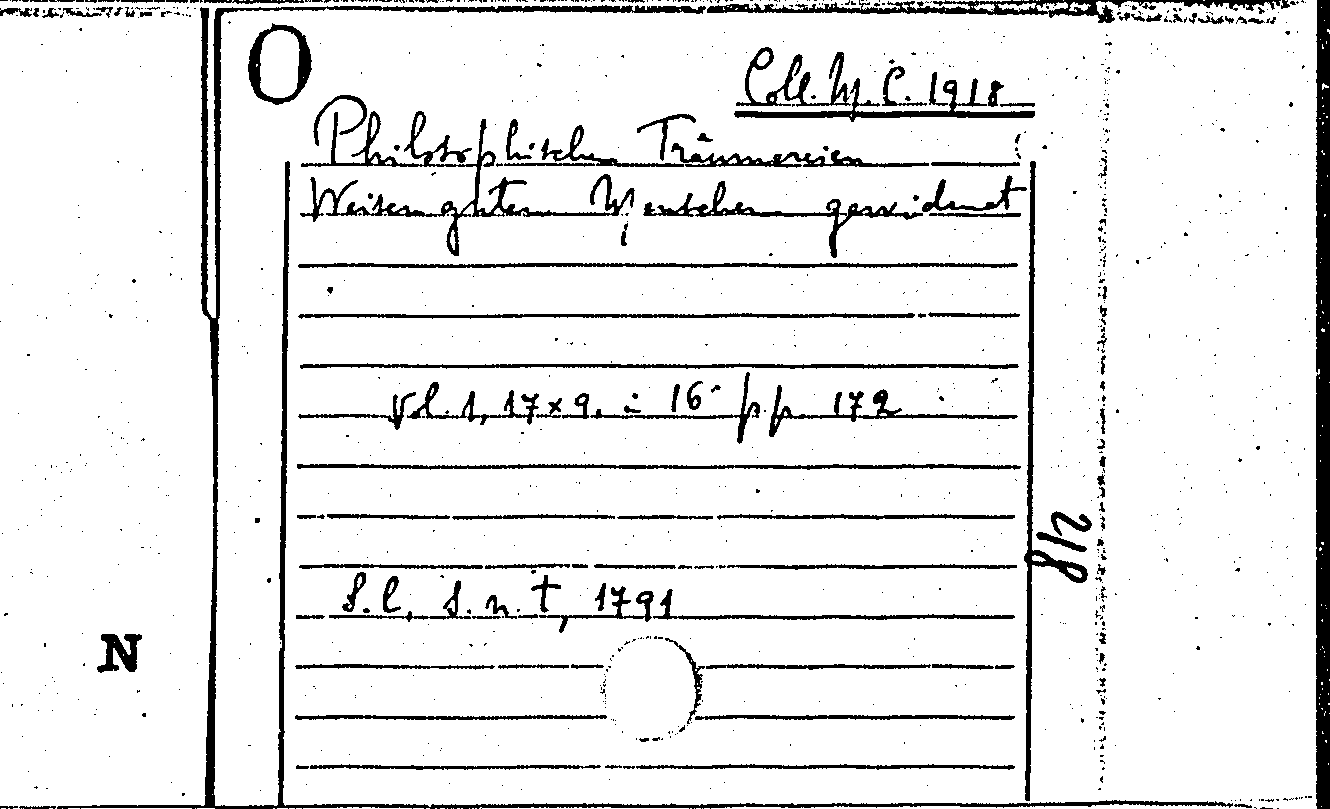 O
Coll. M. C. 1918
Philosophischen Träumereien
Weisen guten Menschen gewidmet
Vol. 1, 17x9. i 16° pp. 172
S. l, s. n. t, 1791
N